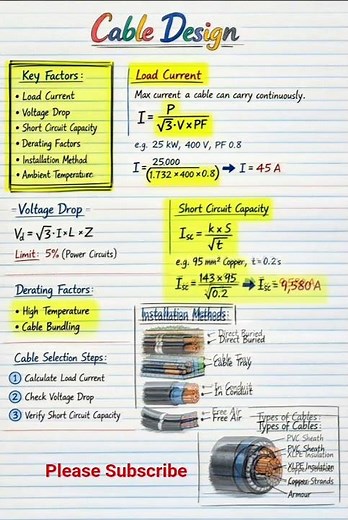 Cable Design
Key Factors:
• Load Current
• Voltage Drop
• Short Circuit Capacity
• Derating Factors
• Installation Method
• Ambient Temperature
Load Current
Max current a cable can carry continuously.
I = P / √3·V×PF
e.g. 25 kW, 400 V, PF 0.8
I = 25000 / (1.732×400×0.8) → I = 45 A
Voltage Drop
Vd = √3·I×L×Z
Limit: 5% (Power Circuits)
Short Circuit Capacity
Isc = k×S / √t
e.g. 95 mm² Copper, t=0.2s
Isc = 143×95 / √0.2 → Isc = 9,580 A
Derating Factors:
• High Temperature
• Cable Bundling
Installation Methods:
Direct Buried
Direct Buried
Cable Tray
Cable Tray
In Conduit
In Conduit
Free Air
Free Air
Cable Selection Steps:
1 Calculate Load Current
2 Check Voltage Drop
3 Verify Short Circuit Capacity
Types of Cables:
Types of Cables:
PVC Sheath
PVC Sheath
XLPE Insulation
XLPE Insulation
Copper Strands
Copper Strands
Armour
Please Subscribe